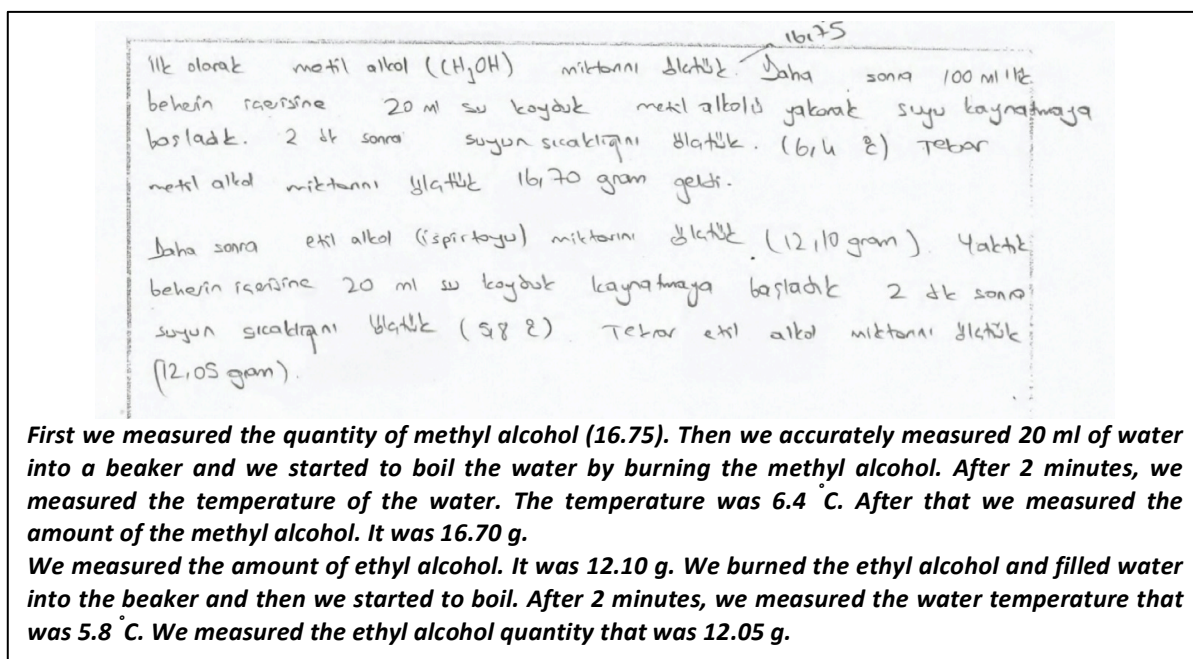 16,75
ilk olarak metil alkol (CH₃OH) miktarını ölçtük. Daha sonra 100 ml lik
beherin içerisine 20 ml su koyduk metil alkolü yakarak suyu kaynatmaya
başladık. 2 dk sonra suyun sıcaklığını ölçtük. (6,4 °C) Tekrar
metil alkol miktarını ölçtük 16,70 gram geldi.
Daha sonra etil alkol (ispirtoyu) miktarını ölçtük (12,10 gram). Yaktık
beherin içerisine 20 ml su koyduk kaynatmaya başladık 2 dk sonra
suyun sıcaklığını ölçtük (5,8 °C). Tekrar etil alkol miktarını ölçtük
(12,05 gram).
First we measured the quantity of methyl alcohol (16.75). Then we accurately measured 20 ml of water
into a beaker and we started to boil the water by burning the methyl alcohol. After 2 minutes, we
measured the temperature of the water. The temperature was 6.4 °C. After that we measured the
amount of the methyl alcohol. It was 16.70 g.
We measured the amount of ethyl alcohol. It was 12.10 g. We burned the ethyl alcohol and filled water
into the beaker and then we started to boil. After 2 minutes, we measured the water temperature that
was 5.8 °C. We measured the ethyl alcohol quantity that was 12.05 g.